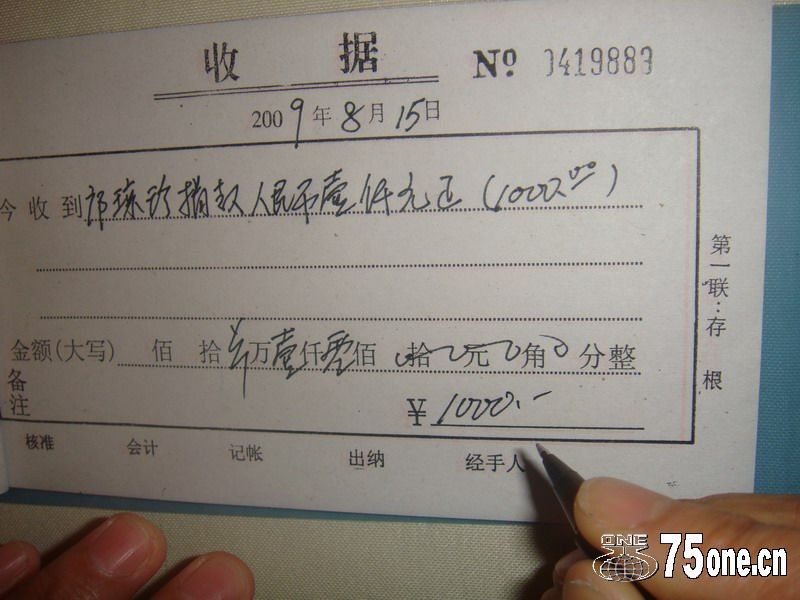 收 据 Nº 0419883
2009年8月15日
今收到 邝琼珍捐款人民币壹仟元正(1000.00)
金额(大写) 佰 拾 万壹仟零佰 拾0元0角0分整
备注 ¥1000.-
核准 会计 记帐 出纳 经手人
第一联:存根
ONE 75one.cn